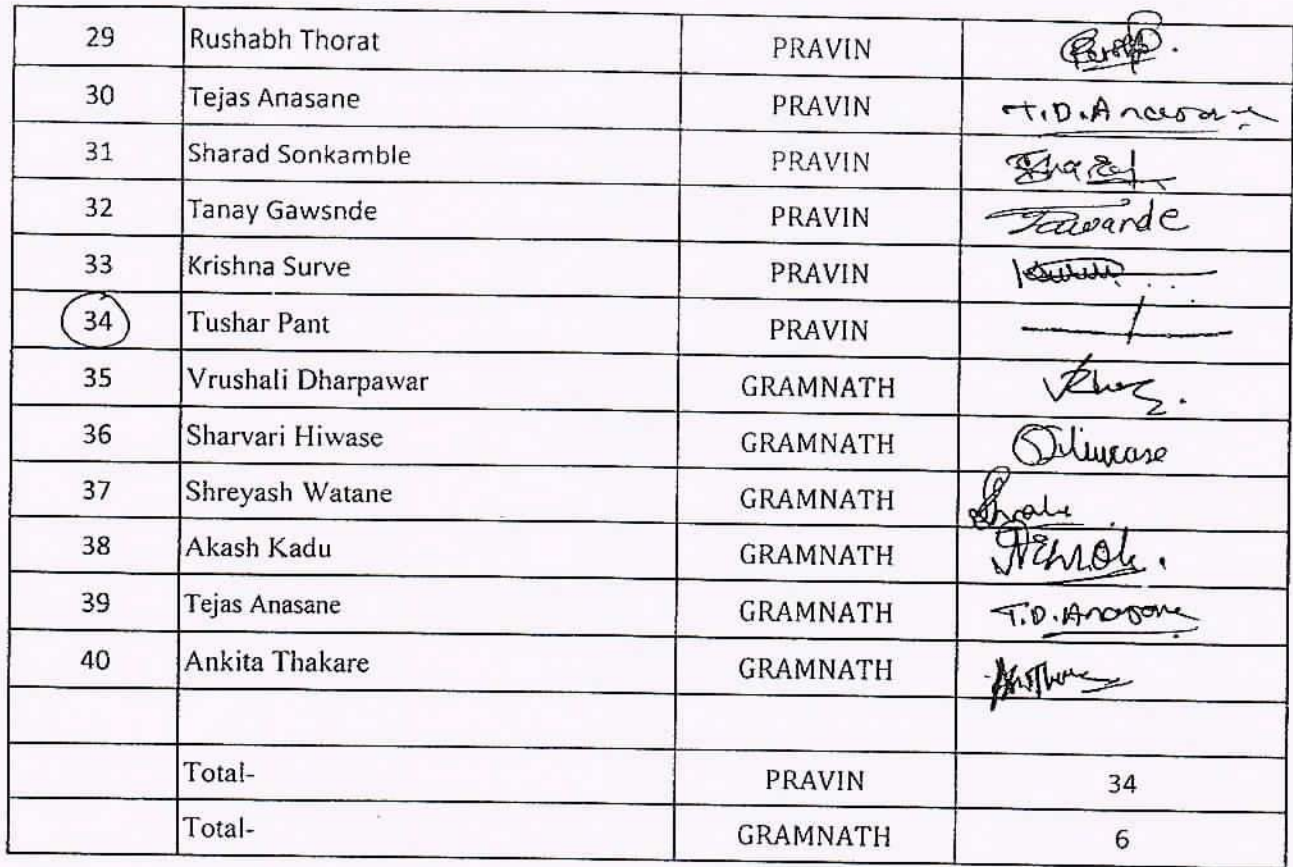 29 Rushabh Thorat PRAVIN
30 Tejas Anasane PRAVIN T.D.Anasane
31 Sharad Sonkamble PRAVIN Sharad
32 Tanay Gawsnde PRAVIN Gawande
33 Krishna Surve PRAVIN
34 Tushar Pant PRAVIN
35 Vrushali Dharpawar GRAMNATH
36 Sharvari Hiwase GRAMNATH SHiwase
37 Shreyash Watane GRAMNATH
38 Akash Kadu GRAMNATH
39 Tejas Anasane GRAMNATH T.D.Anasane
40 Ankita Thakare GRAMNATH
Total- PRAVIN 34
Total- GRAMNATH 6